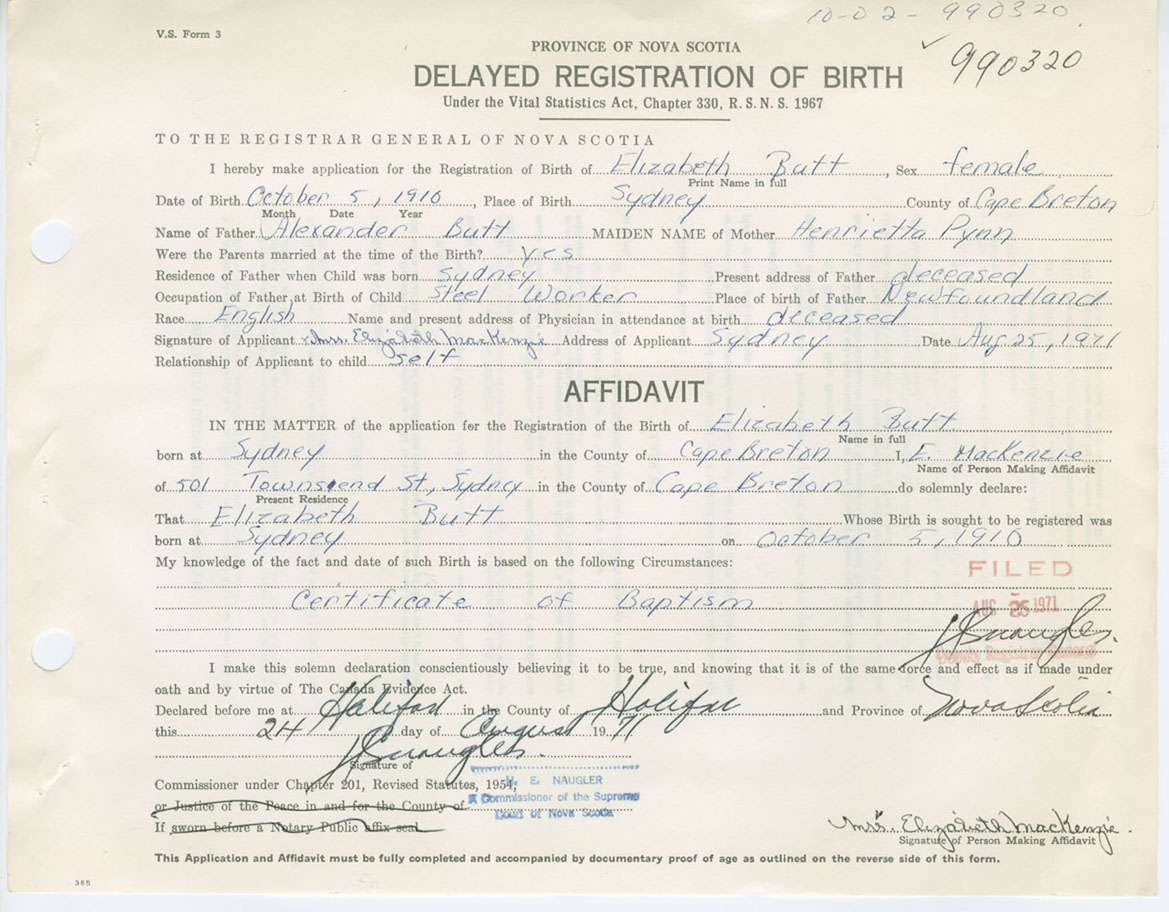 10-02-990320
V.S. Form 3
990320
PROVINCE OF NOVA SCOTIA
DELAYED REGISTRATION OF BIRTH
Under the Vital Statistics Act, Chapter 330, R. S. N. S. 1967
TO THE REGISTRAR GENERAL OF NOVA SCOTIA
I hereby make application for the Registration of Birth of Elizabeth Butt, Sex female
Print Name in full
Date of Birth October 5, 1910, Place of Birth Sydney County of Cape Breton
Month Date Year
Name of Father Alexander Butt MAIDEN NAME of Mother Henrietta Pynn
Were the Parents married at the time of the Birth? yes
Residence of Father when Child was born Sydney Present address of Father deceased
Occupation of Father at Birth of Child Steel Worker Place of birth of Father Newfoundland
Race English Name and present address of Physician in attendance at birth deceased
Signature of Applicant Mrs. Elizabeth MacKenzie Address of Applicant Sydney Date Aug 25, 1971
Relationship of Applicant to child self
AFFIDAVIT
IN THE MATTER of the application for the Registration of the Birth of Elizabeth Butt
Name in full
born at Sydney in the County of Cape Breton I, E. MacKenzie
Name of Person Making Affidavit
of 501 Townsend St, Sydney in the County of Cape Breton do solemnly declare:
Present Residence
That Elizabeth Butt Whose Birth is sought to be registered was
born at Sydney on October 5, 1910
My knowledge of the fact and date of such Birth is based on the following Circumstances:
FILED
Certificate of Baptism
AUG 25 1971
Deputy Registrar General
I make this solemn declaration conscientiously believing it to be true, and knowing that it is of the same force and effect as if made under
oath and by virtue of The Canada Evidence Act.
Declared before me at Halifax in the County of Halifax and Province of Nova Scotia
this 24 day of August 1971
Signature of
Commissioner under Chapter 201, Revised Statutes, 1954,
H. E. NAUGLER
A Commissioner of the Supreme
Court of Nova Scotia
or Justice of the Peace in and for the County of
If sworn before a Notary Public affix seal
Mrs. Elizabeth MacKenzie
Signature of Person Making Affidavit
This Application and Affidavit must be fully completed and accompanied by documentary proof of age as outlined on the reverse side of this form.
385